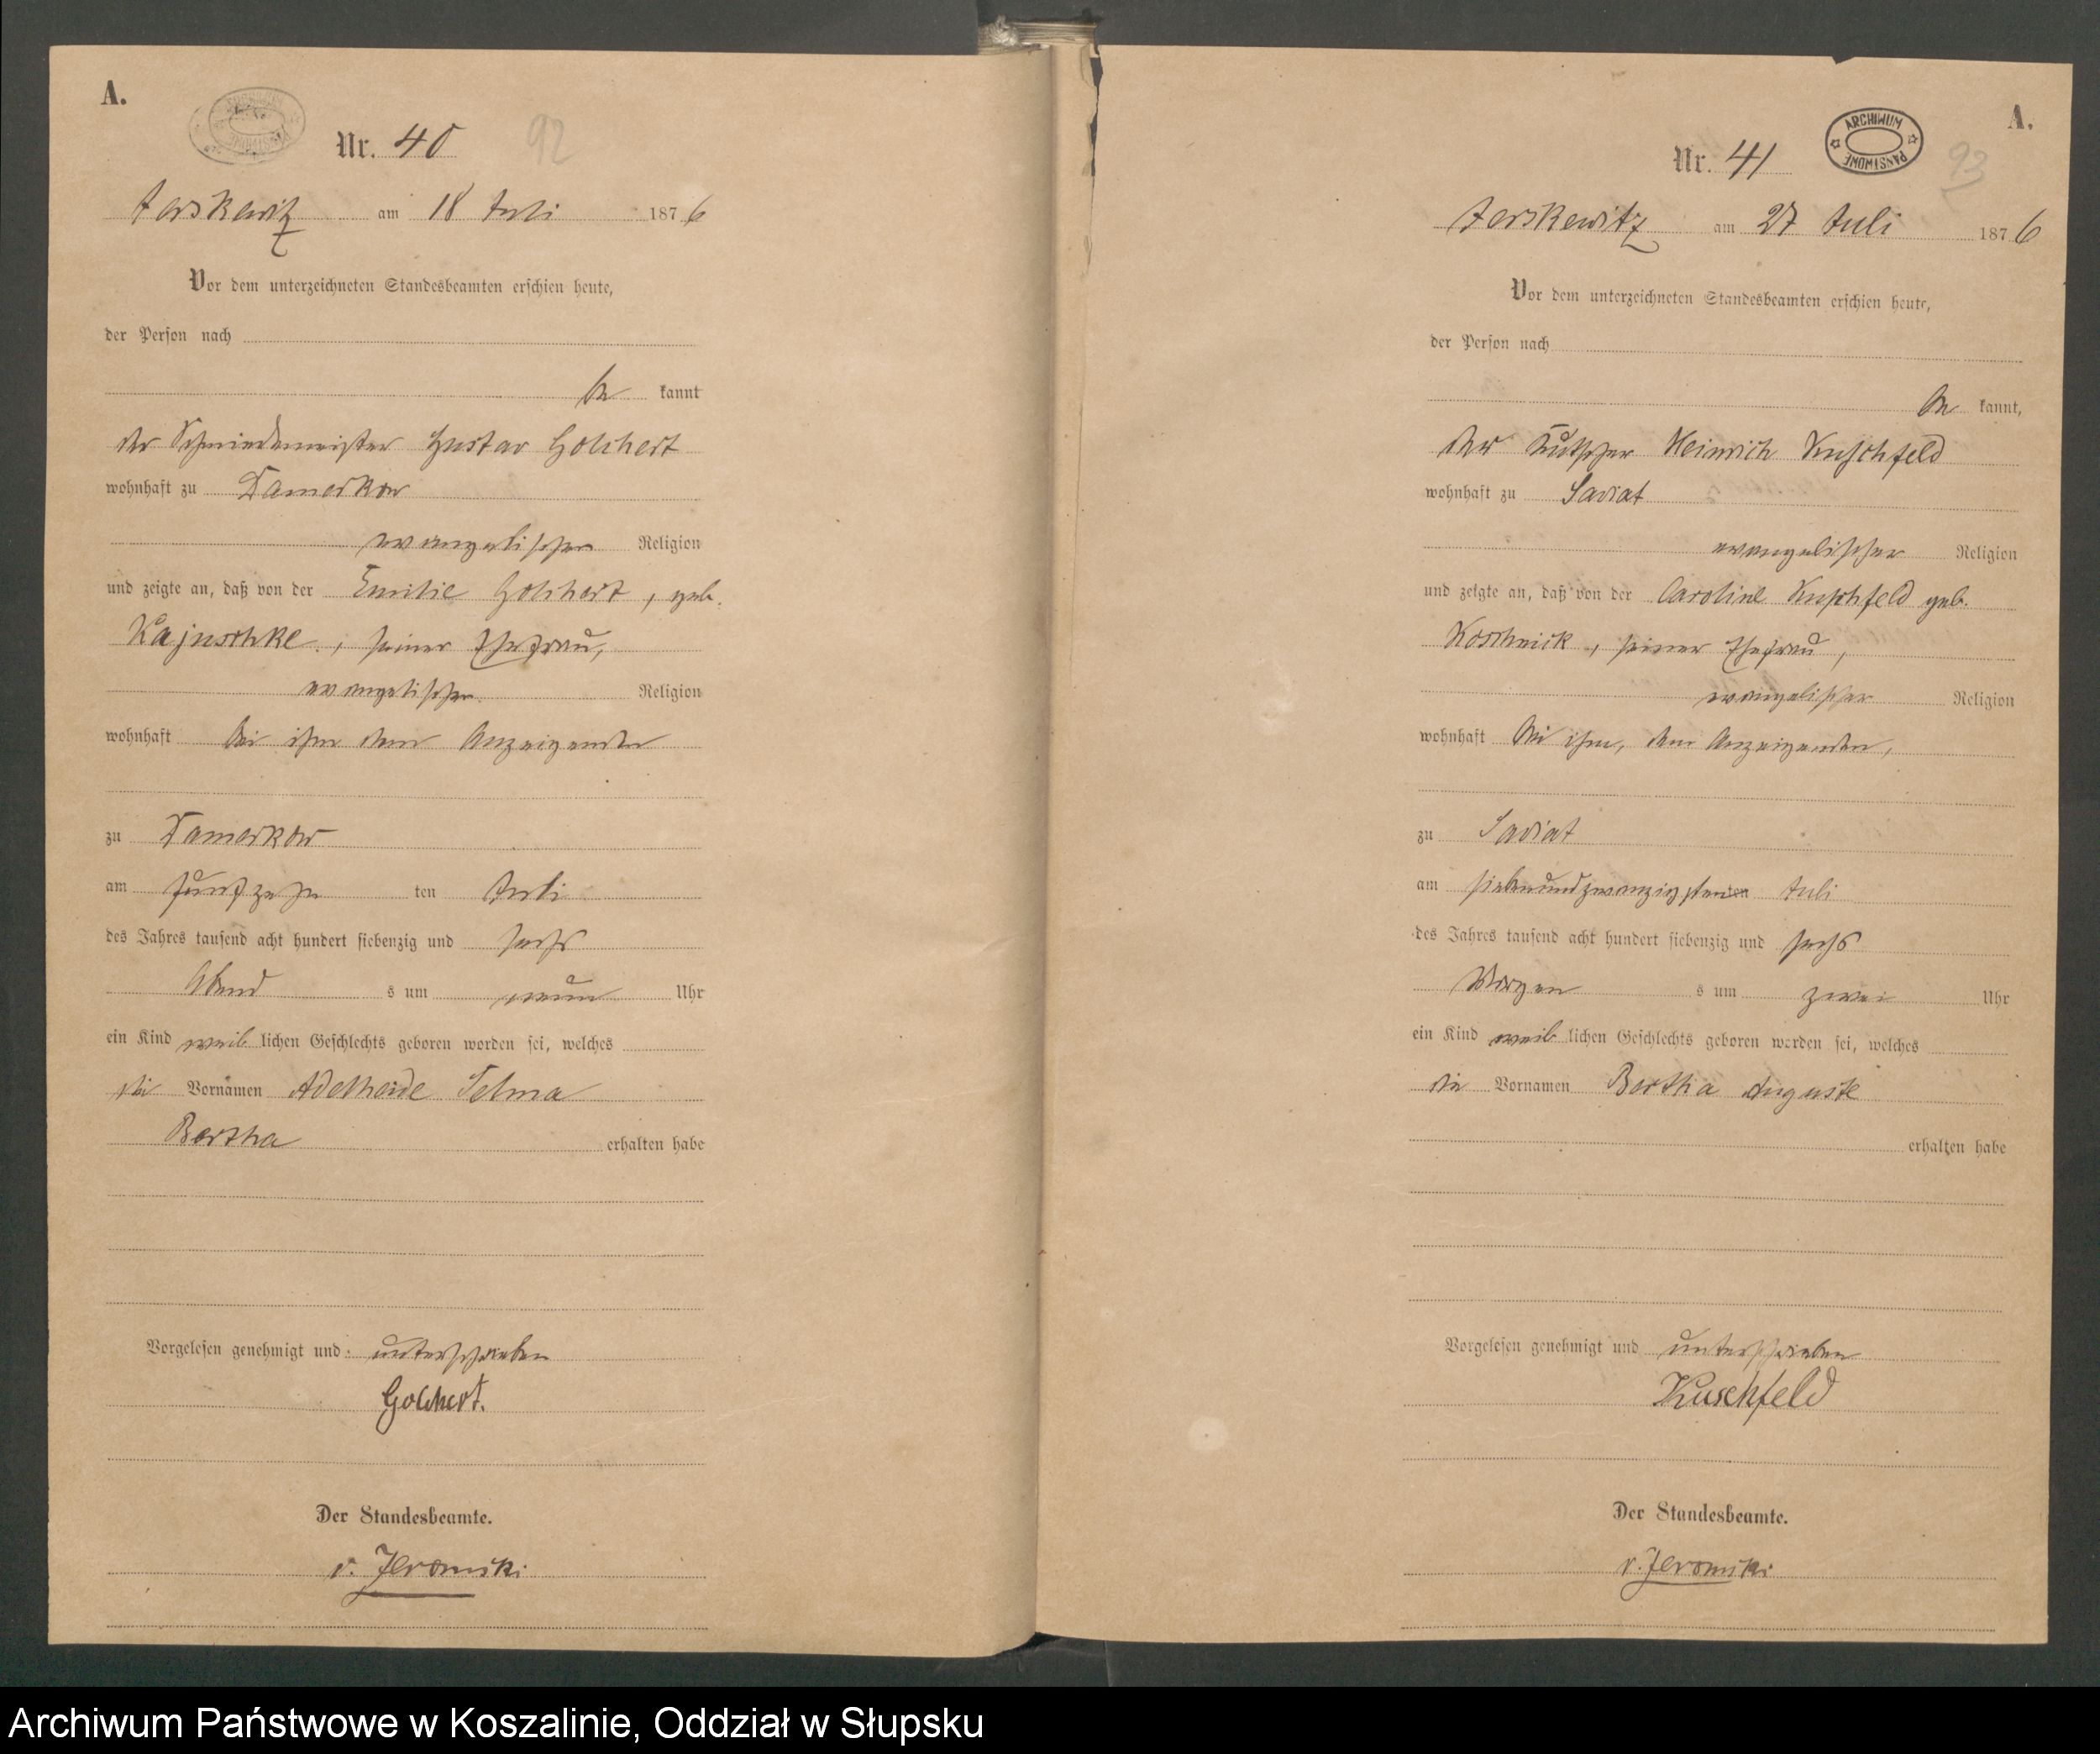 A.
Nr. 40
92
Jerskewitz am 18 Juli 1876
Vor dem unterzeichneten Standesbeamten erschien heute,
der Person nach
be kannt
der Schmiedemeister Gustav Golchert
wohnhaft zu Damerkow
evangelischer Religion
und zeigte an, daß von der Emilie Golchert, geb.
Kajuschke, seiner Ehefrau,
evangelischer Religion
wohnhaft bei ihm dem Anzeigenden
zu Damerkow
am fünfzehn ten Juli
des Jahres tausend acht hundert siebenzig und sechs
Abend s um neun Uhr
ein Kind weib lichen Geschlechts geboren worden sei, welches
die Vornamen Adelheide Selma
Bertha erhalten habe
Vorgelesen genehmigt und unterschrieben
Golchert.
Der Standesbeamte.
v. Jeromski
A.
ARCHIWUM PAŃSTWOWE
Nr. 41
93
Jerskewitz am 27 Juli 1876
Vor dem unterzeichneten Standesbeamten erschien heute,
der Person nach
be kannt,
der Kutscher Heinrich Kuschfeld
wohnhaft zu Saviat
evangelischer Religion
und zeigte an, daß von der Caroline Kuschfeld geb.
Koschnick, seiner Ehefrau,
evangelischer Religion
wohnhaft bei ihm, dem Anzeigenden,
zu Saviat
am siebenundzwanzigsten Juli
des Jahres tausend acht hundert siebenzig und sechs
Morgen s um zwei Uhr
ein Kind weib lichen Geschlechts geboren worden sei, welches
die Vornamen Bertha Auguste
erhalten habe
Vorgelesen genehmigt und unterschrieben
Kuschfeld
Der Standesbeamte.
v. Jeromski
Archiwum Państwowe w Koszalinie, Oddział w Słupsku